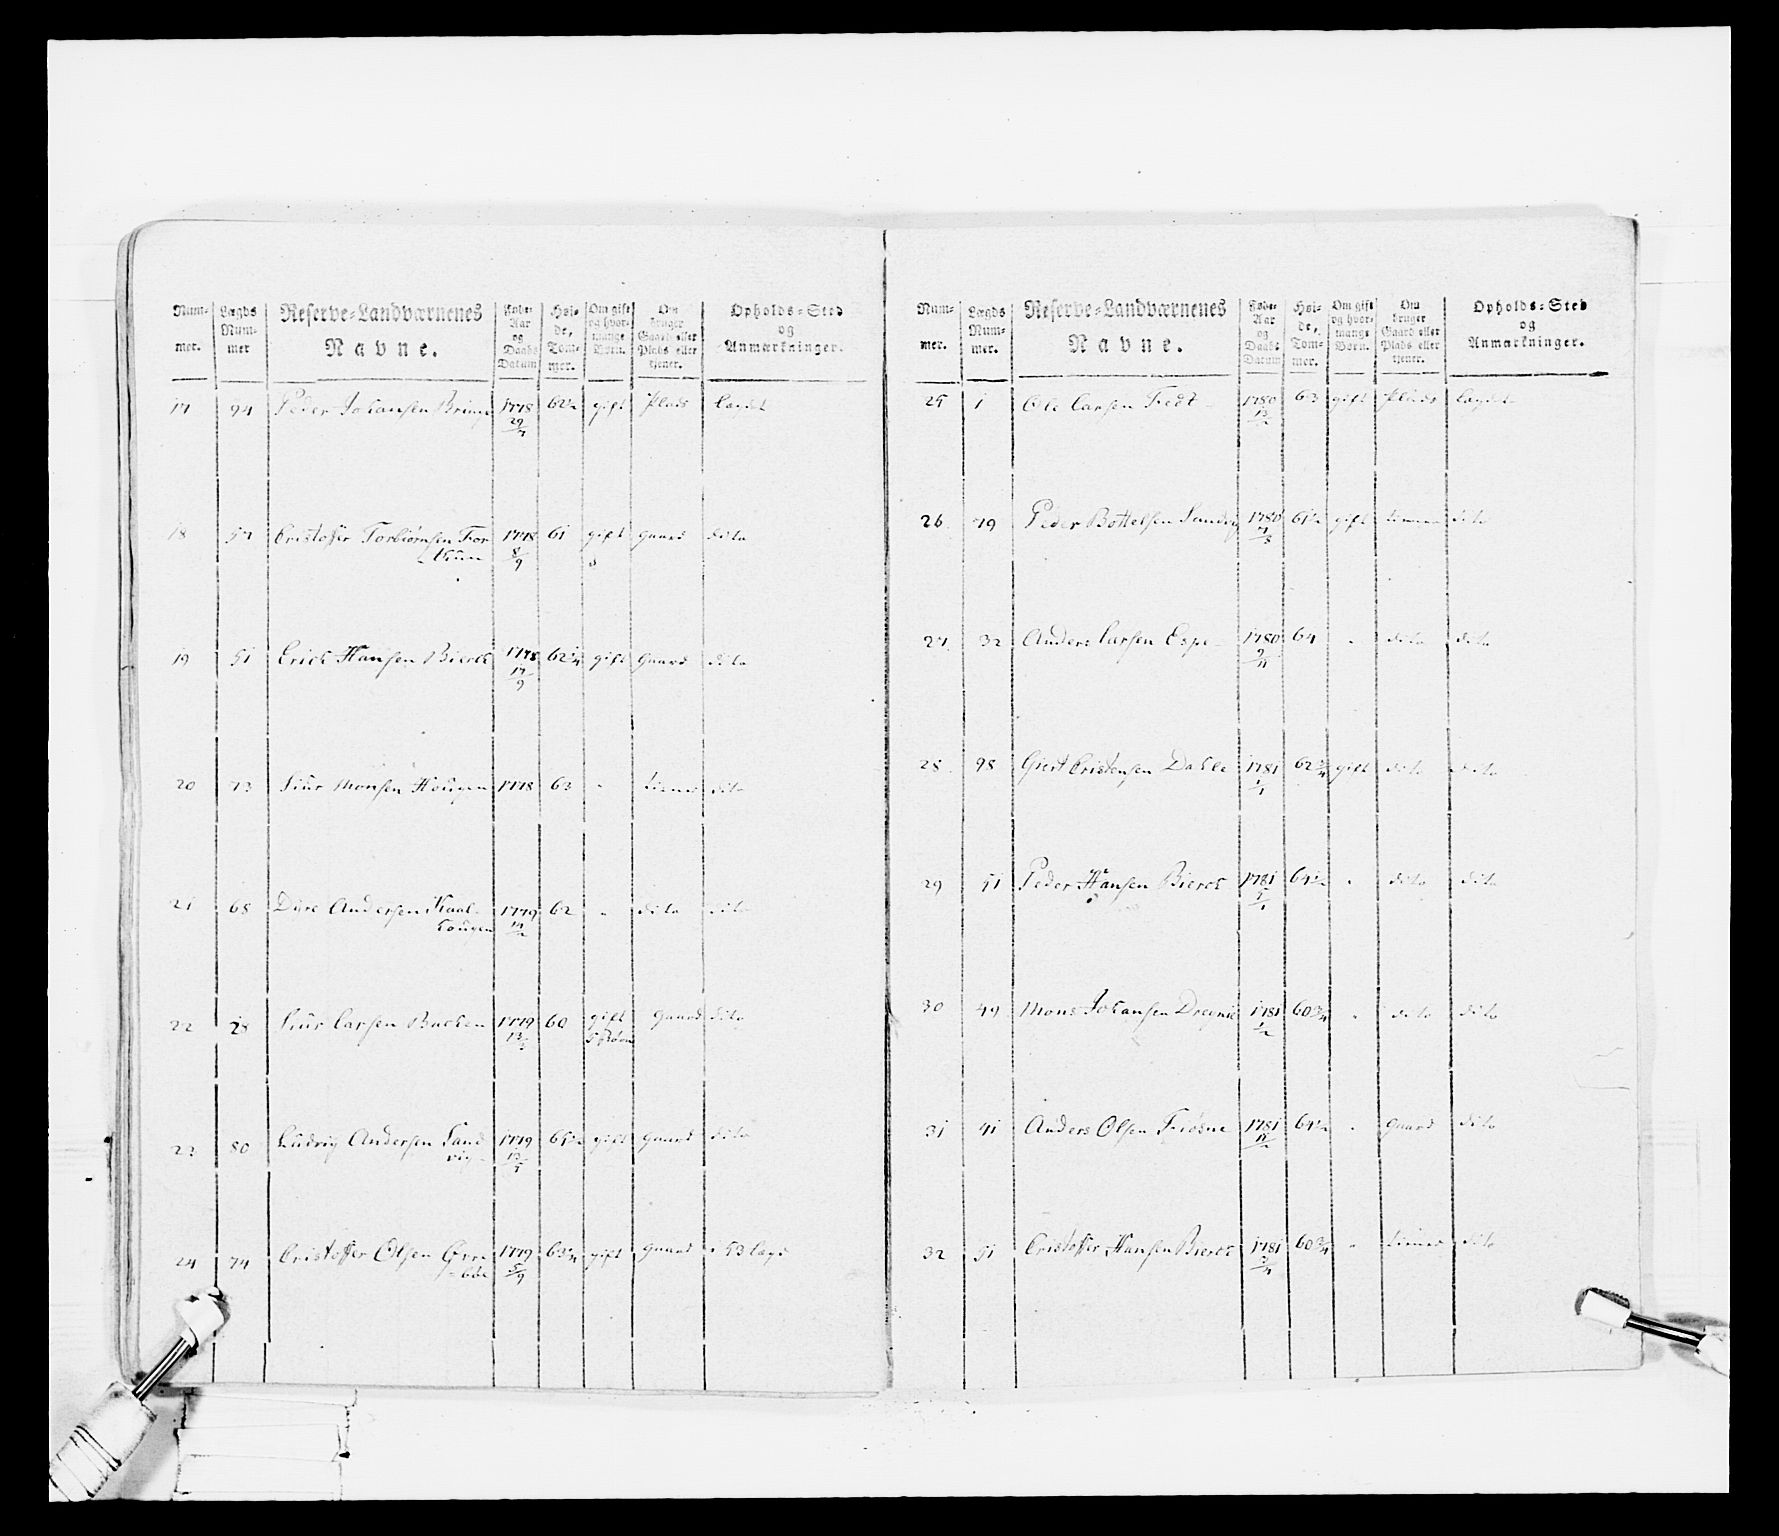 Num-
mer.
Lægds
Num-
mer
Reserve-Landværnenes
Navne.
Føde-
Aar
og
Daabs
Datum
Høi-
de,
Tom-
mer.
Om gift
og hvor-
mange
Børn.
Om
bruger
Gaard eller
Plads eller
tjener.
Opholds-Sted
og
Anmærkninger.
17 94 Peder Johansen Brime 1778 62½ gift Plads Lægdet
29/7
18 57 Cristoffer Torbiørnsen Tor 1778 61 gift gaard dito
8/9
19 51 Erick Hansen Bierck 1778 62¼ gift Gaard dito
17/9
20 73 Siur Monsen Hougen 1778 63 " dito
21 68 Dyre Andersen Kaal- 1779 62 " dito dito
hougen
22 28 Siur Larsen Backen 1779 60 gift Gaard dito
5 Børn
23 80 Ludvig Andersen Sand 1779 gift gaard dito
vig
24 74 Cristoffer Olsen 1779 63¼ gift gaard i 53 lægd
bøe 5/9
Num-
mer.
Lægds
Num-
mer.
Reserve-Landværnenes
Navne.
Føde-
Aar
og
Daabs
Datum
Høi-
de,
Tom-
mer.
Om gift
og hvor-
mange
Børn.
Om
bruger
Gaard eller
Plads eller
tjener.
Opholds-Sted
og
Anmærkninger.
25 1 Ole Larsen 1780 63 gift Plads Lægdet
26 79 Peder Bottelsen Sandvig 1780 61½ gift dito
7/8
27 32 Anders Larsen Espe 1780 64 " dito dito
9/11
28 98 Giert Cristensen Dahle 1781 62¾ gift dito dito
1/1
29 51 Peder Hansen Bierck 1781 64½ " dito dito
30 49 Mons Johansen 1781 60¾ " dito dito
1/2
31 41 Anders Olsen 1781 64½ " gaard dito
32 51 Cristoffer Hansen Bierck 1781 60¾ " dito
3/4